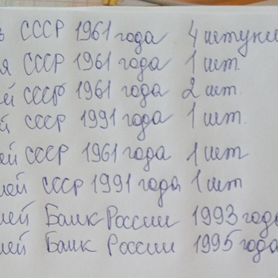 СССР 1961 года 4 штуки
СССР 1961 года 1 шт.
СССР 1961 года 2 шт.
СССР 1991 года 1 шт.
СССР 1961 года 1 шт
СССР 1991 года 1 шт
Банк России 1993 года
Банк России 1995 года